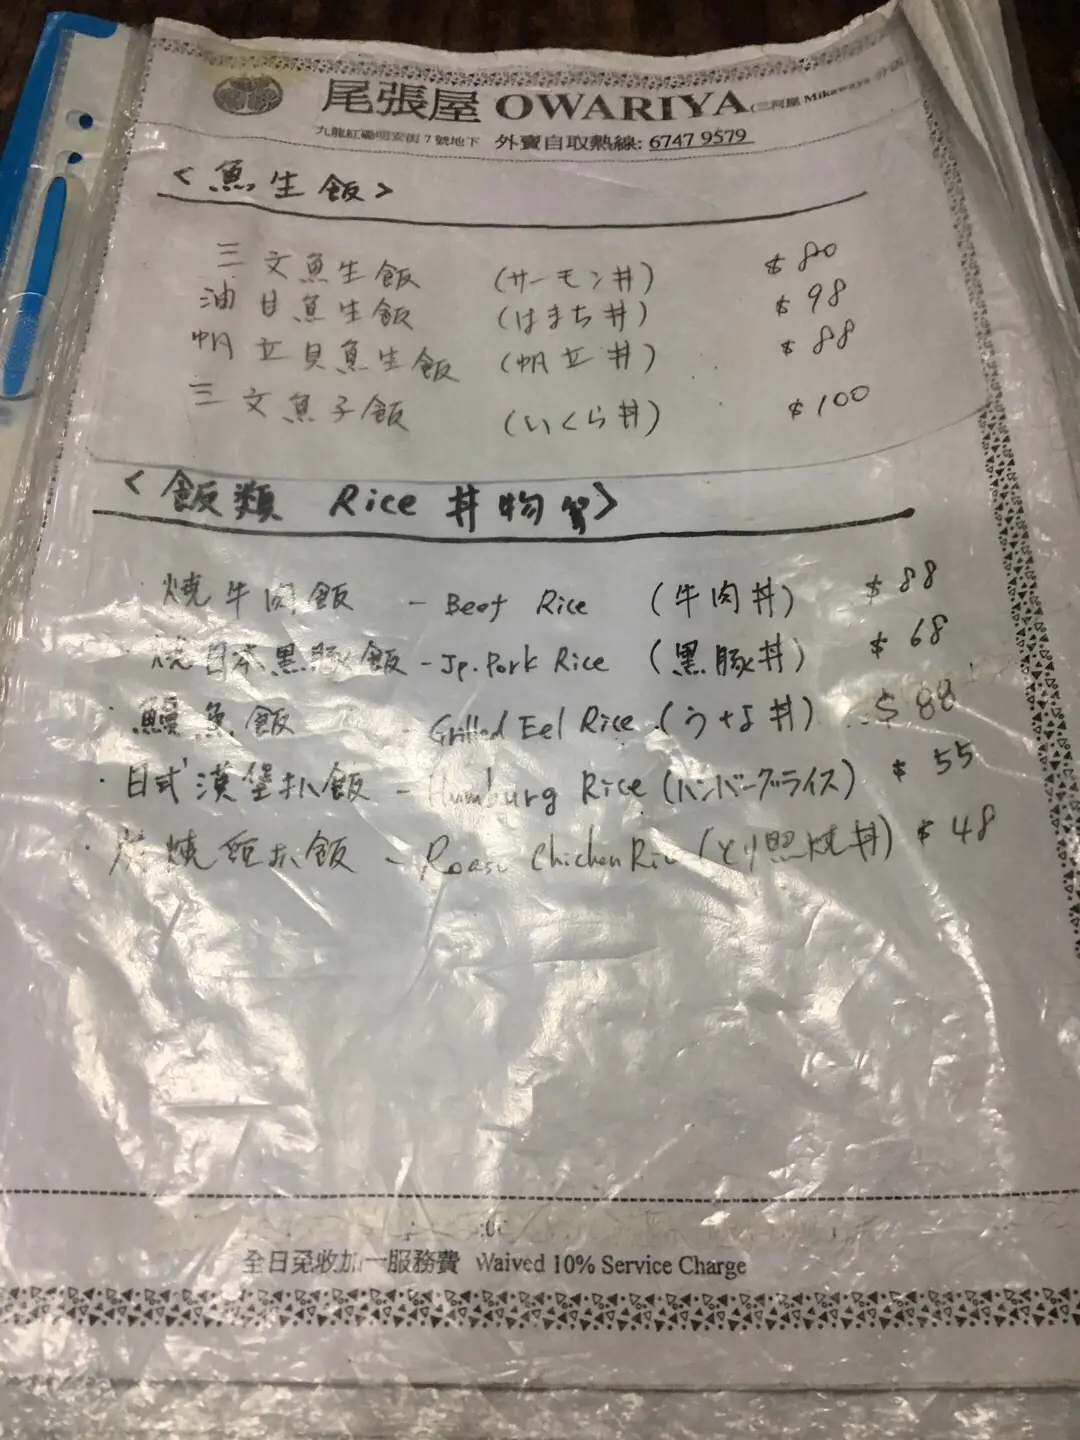 尾張屋 OWARIYA (三河屋 Mikawaya 分店
九龍紅磡明安街 7 號地下 外賣自取熱線: 6747 9579
<魚生飯>
三文魚生飯 (サーモン丼) $80
油甘魚生飯 (はまち丼) $98
帆立貝魚生飯 (帆立丼) $88
三文魚子飯 (いくら丼) $100
<飯類 Rice 丼物等>
燒牛肉飯 - Beef Rice (牛肉丼) $88
燒日本黑豚飯 - Jp. Pork Rice (黑豚丼) $68
鰻魚飯 - Grilled Eel Rice (うなよ丼) $88
· 日式漢堡扒飯 - Humburg Rice (ハンバーグライス) $55
· 燒雞扒飯 - Roast Chicken Ric (とり照焼丼) $48
全日免收加一服務費 Waived 10% Service Charge